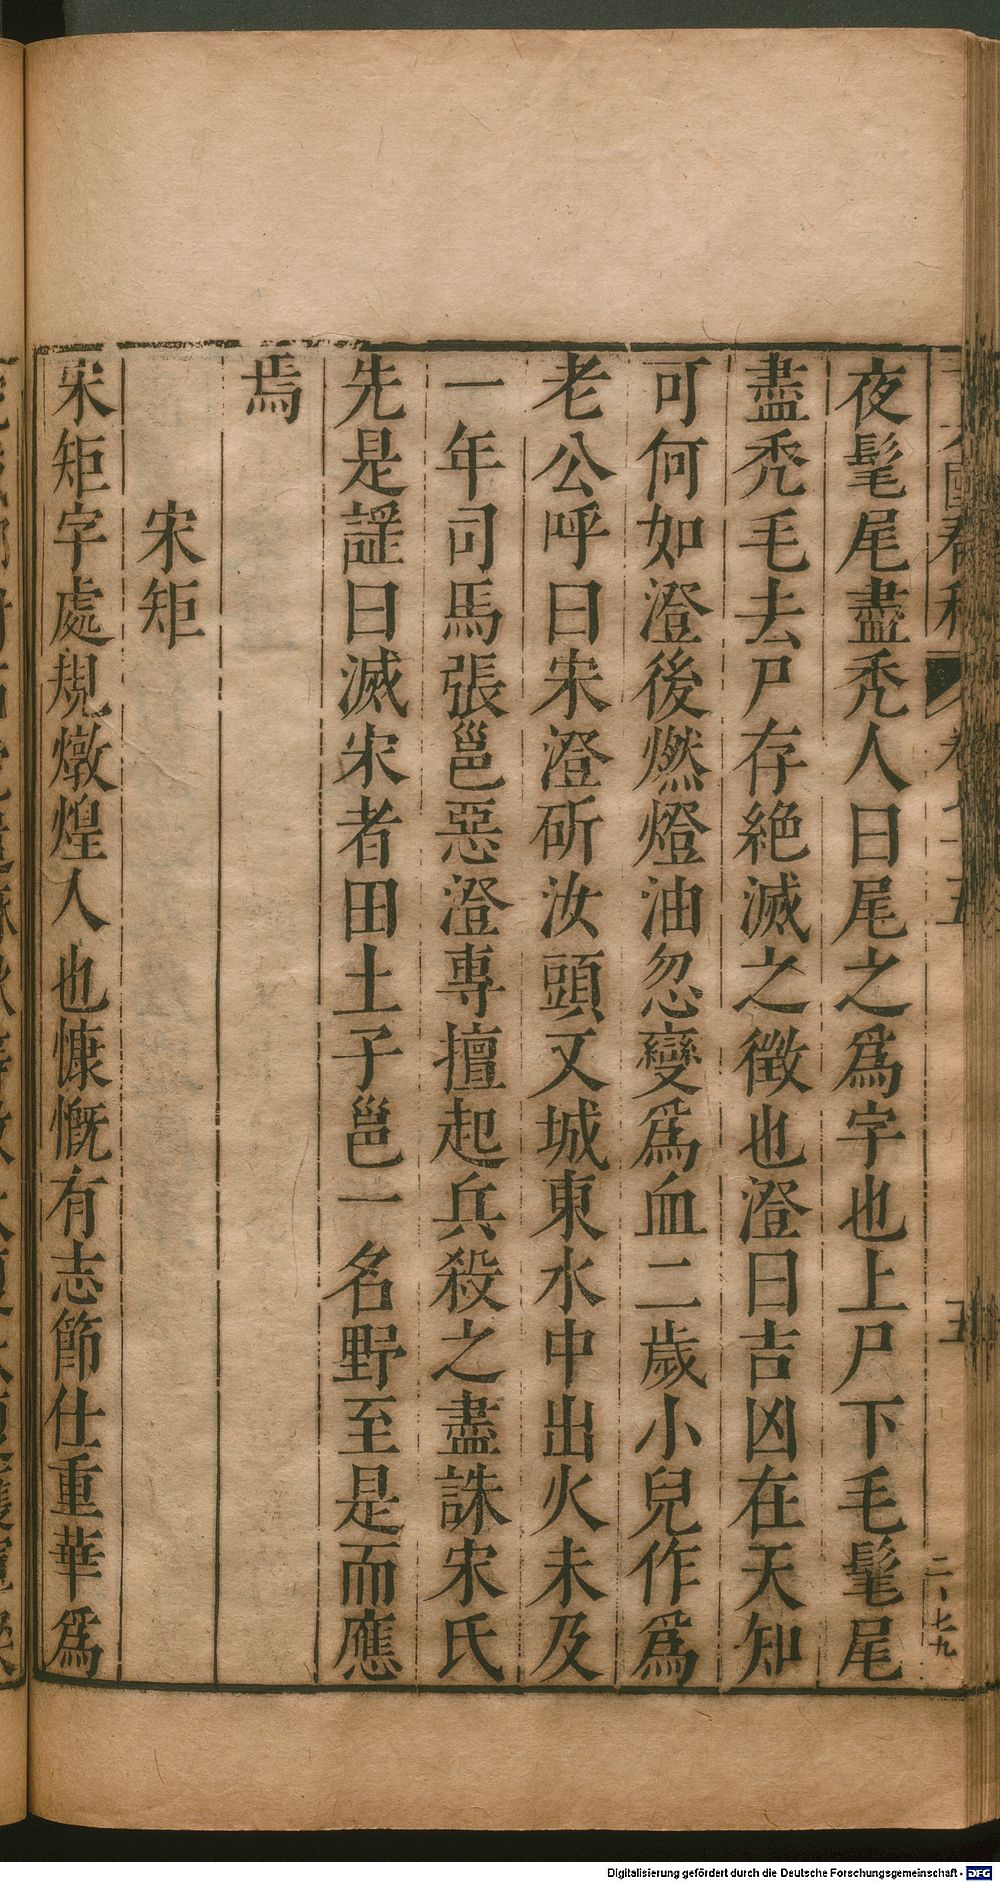 夜髦尾盡禿人曰尾之爲字也上尸下毛髦尾
盡禿毛去尸存絶滅之徵也澄曰吉凶在天知
可何如澄後燃燈油忽變爲血二歲小兒作爲
老公呼曰宋澄斫汝頭又城東水中出火未及
一年司馬張邕惡澄專擅起兵殺之盡誅宋氏
先是謡曰滅宋者田土子邕一名野至是而應
焉
宋矩
宋矩字處規燉煌人也慷慨有志節仕重華爲
二、七九
Digitalisierung gefördert durch die Deutsche Forschungsgemeinschaft - DFG